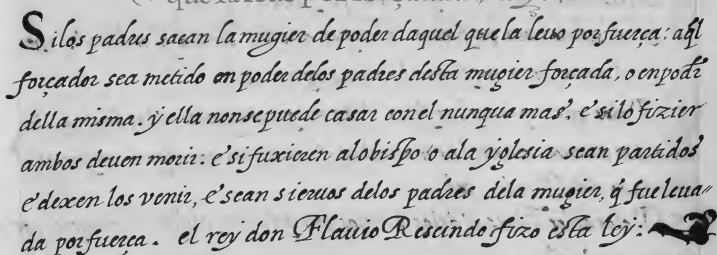 Silos padres sacan la mugier de poder daquel que la leuo por fuerça: aq̃l
forçador sea metido en poder delos padres desta mugier forçada, o en podr̃
della misma. y ella non se puede casar con el nunqua mas. e si lo fizier
ambos deuen morir: e si fuxieren al obispo o ala yglesia sean partidos
e dexen los venir, e sean sieruos delos padres dela mugier, q̃ fue leua„
da por fuerça. el rey don Flauio Rescindo fizo esta ley: